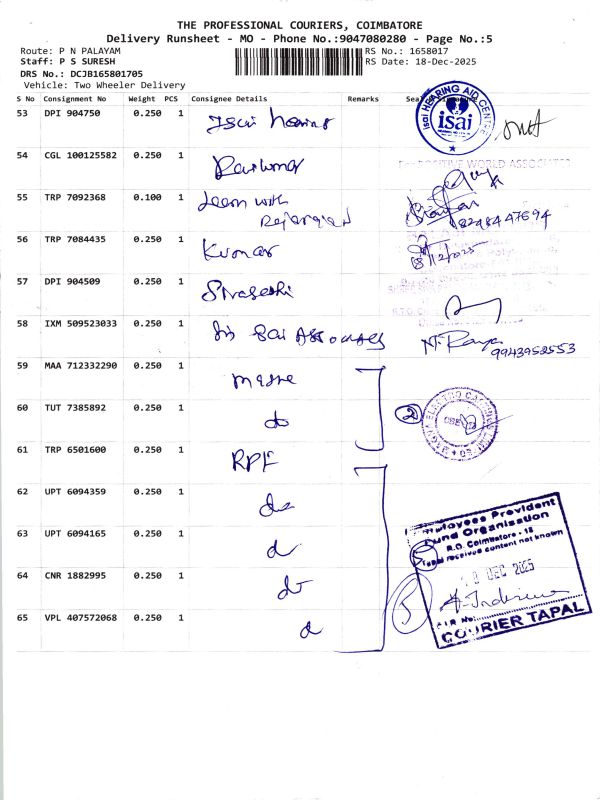 THE PROFESSIONAL COURIERS, COIMBATORE
Delivery Runsheet - MO - Phone No.:9047080280 - Page No.:5
Route: P N PALAYAM
RS No.: 1658017
Staff: P S SURESH
RS Date: 18-Dec-2025
DRS No.: DCJB165801705
Vehicle: Two Wheeler Delivery
S No Consignment No Weight PCS Consignee Details Remarks
53 DPI 904750 0.250 1
isai HEARING AID CENTRE
isai
54 CGL 100125582 0.250 1
For POSITIVE WORLD ASSOCIATES
55 TRP 7092368 0.100 1 Learn with
8248447694
56 TRP 7084435 0.250 1 Kumar
57 DPI 904509 0.250 1
58 IXM 509523033 0.250 1 Sri Sai Associates
9943952553
59 MAA 712332290 0.250 1
60 TUT 7385892 0.250 1 do
2
61 TRP 6501600 0.250 1
62 UPT 6094359 0.250 1 do
63 UPT 6094165 0.250 1
64 CNR 1882995 0.250 1 do
65 VPL 407572068 0.250 1
5
Employees Provident
Fund Organisation
R.O. Coimbatore - 18
Tapal receive content not known
DEC 2025
COURIER TAPAL